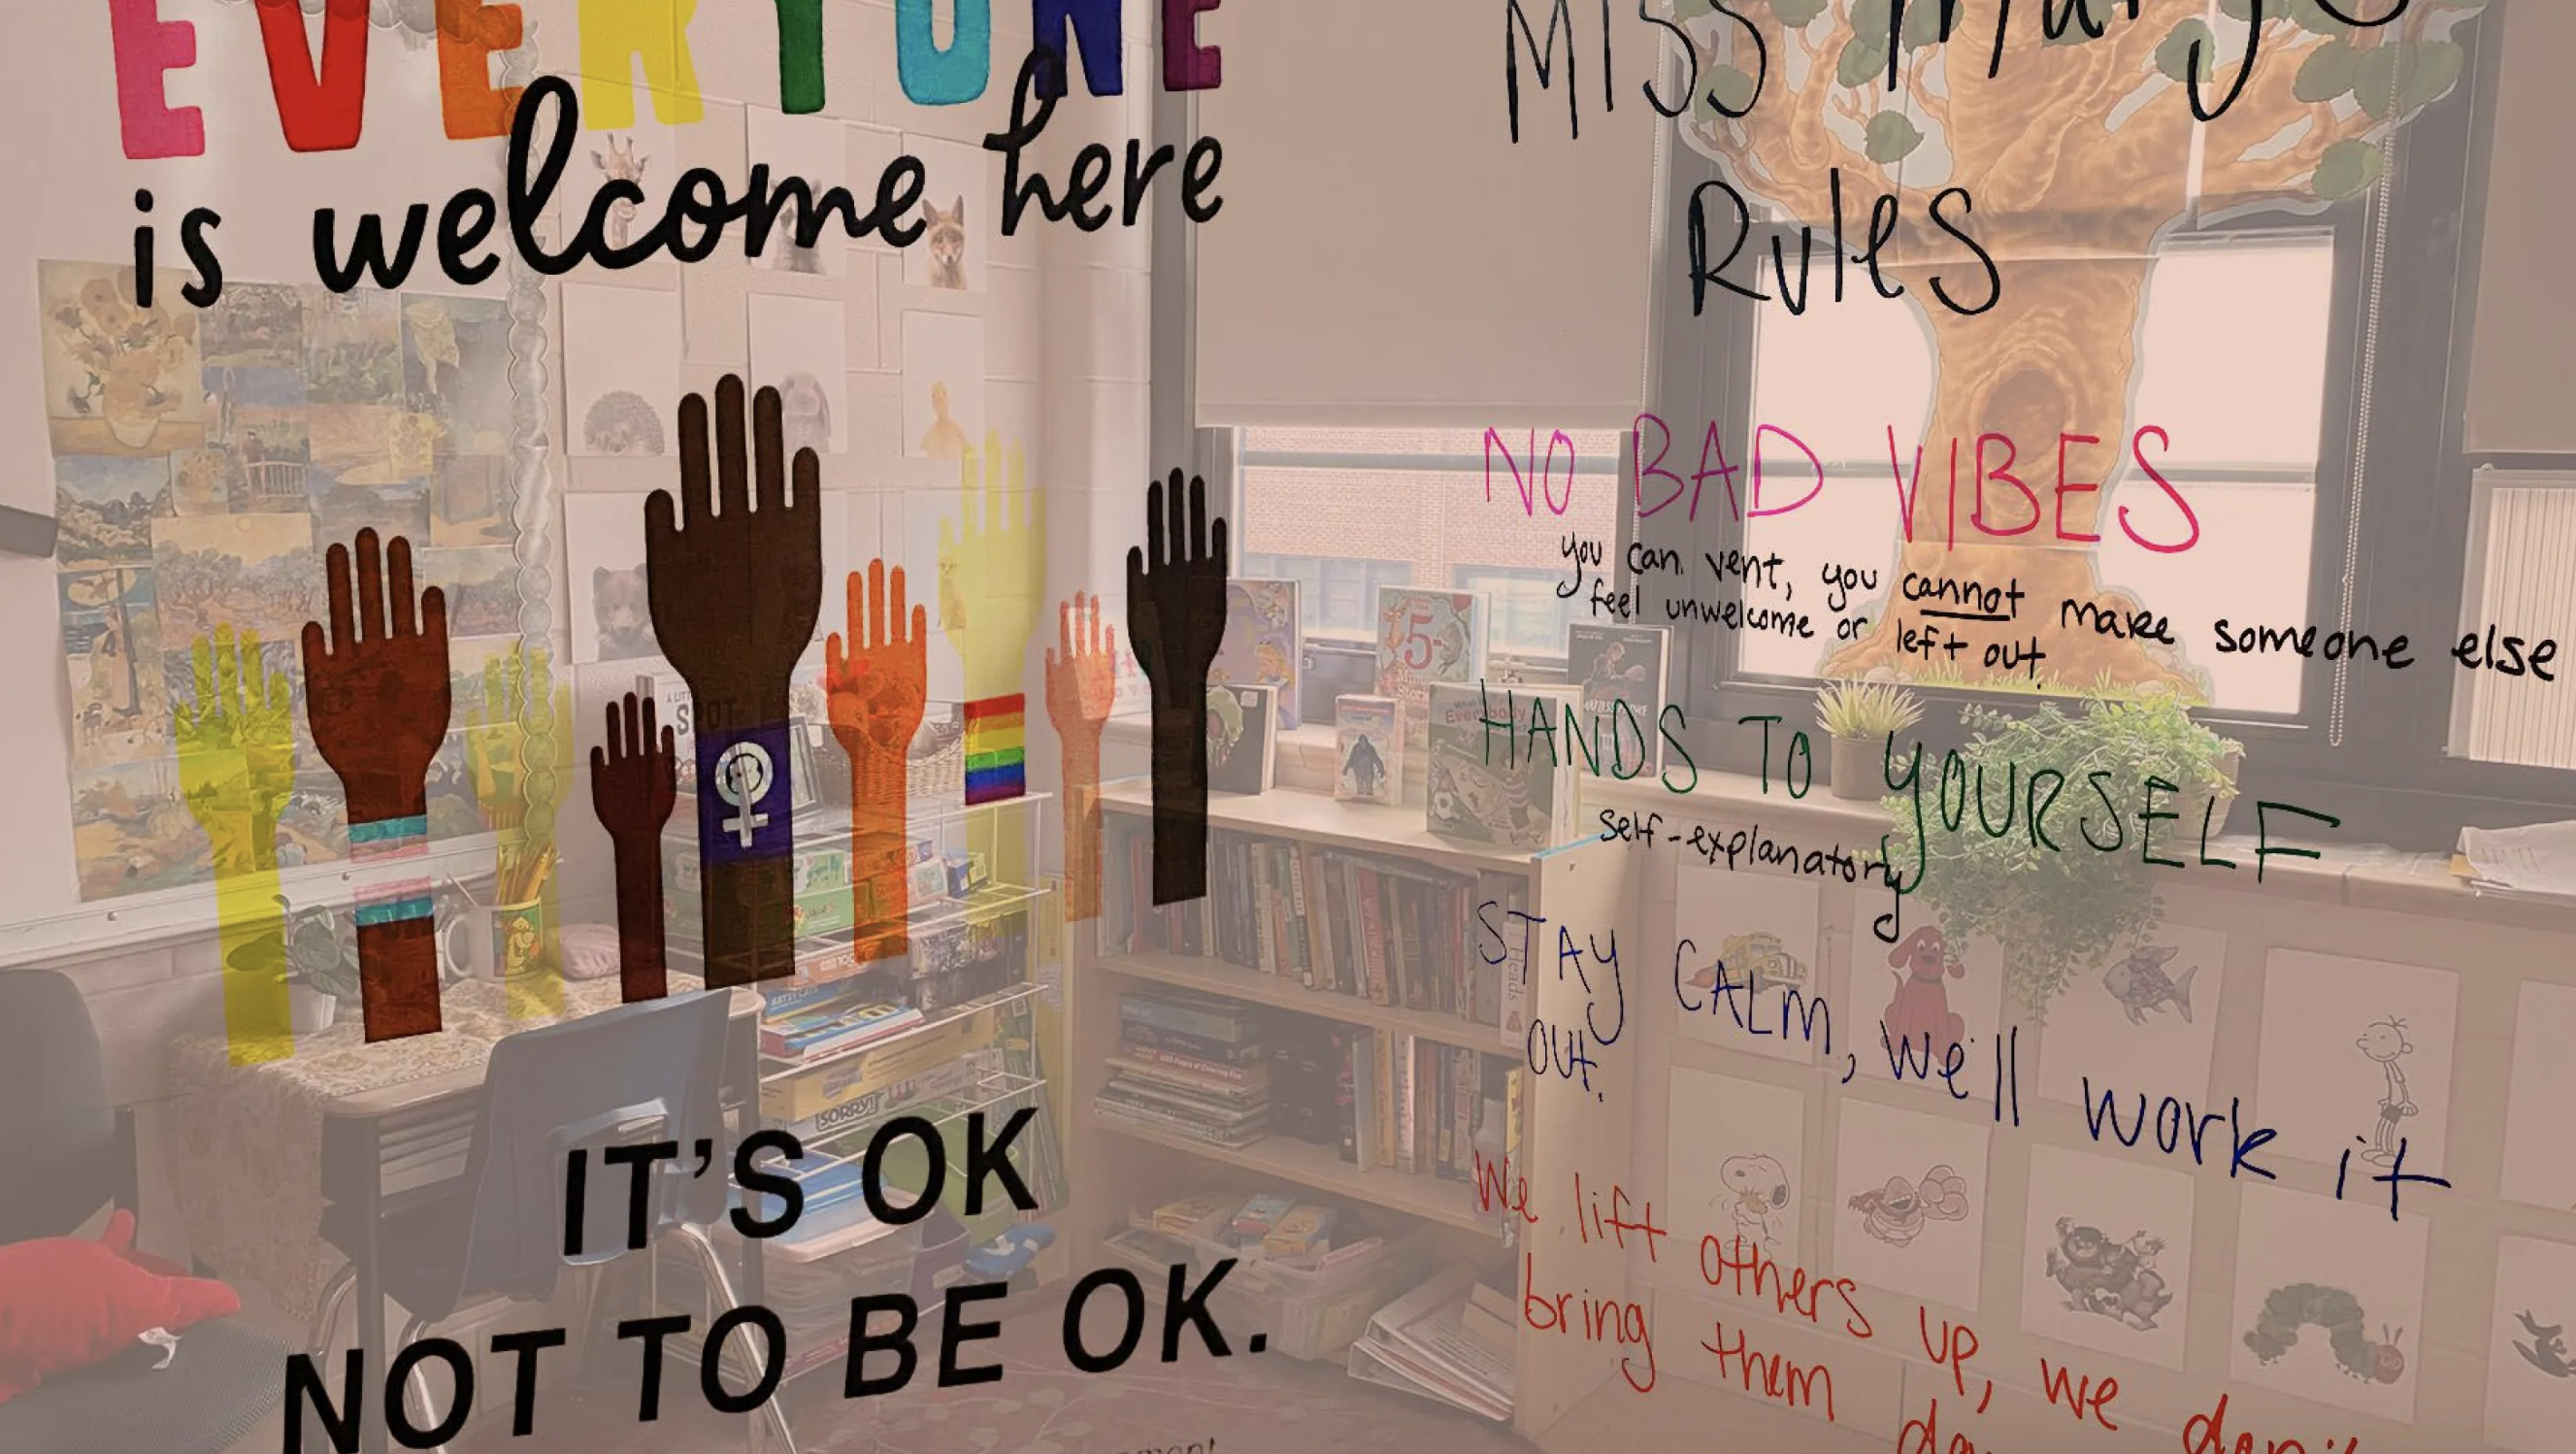 EVERYONE
is welcome here
IT'S OK
NOT TO BE OK.
MISS
Rules
NO BAD VIBES
you can vent, you cannot make someone else
feel unwelcome or left out.
HANDS TO YOURSELF
self-explanatory
STAY CALM, we'll work it
out.
We lift others up, we don't
bring them
SPOT
SORRY!
5-
Everybody